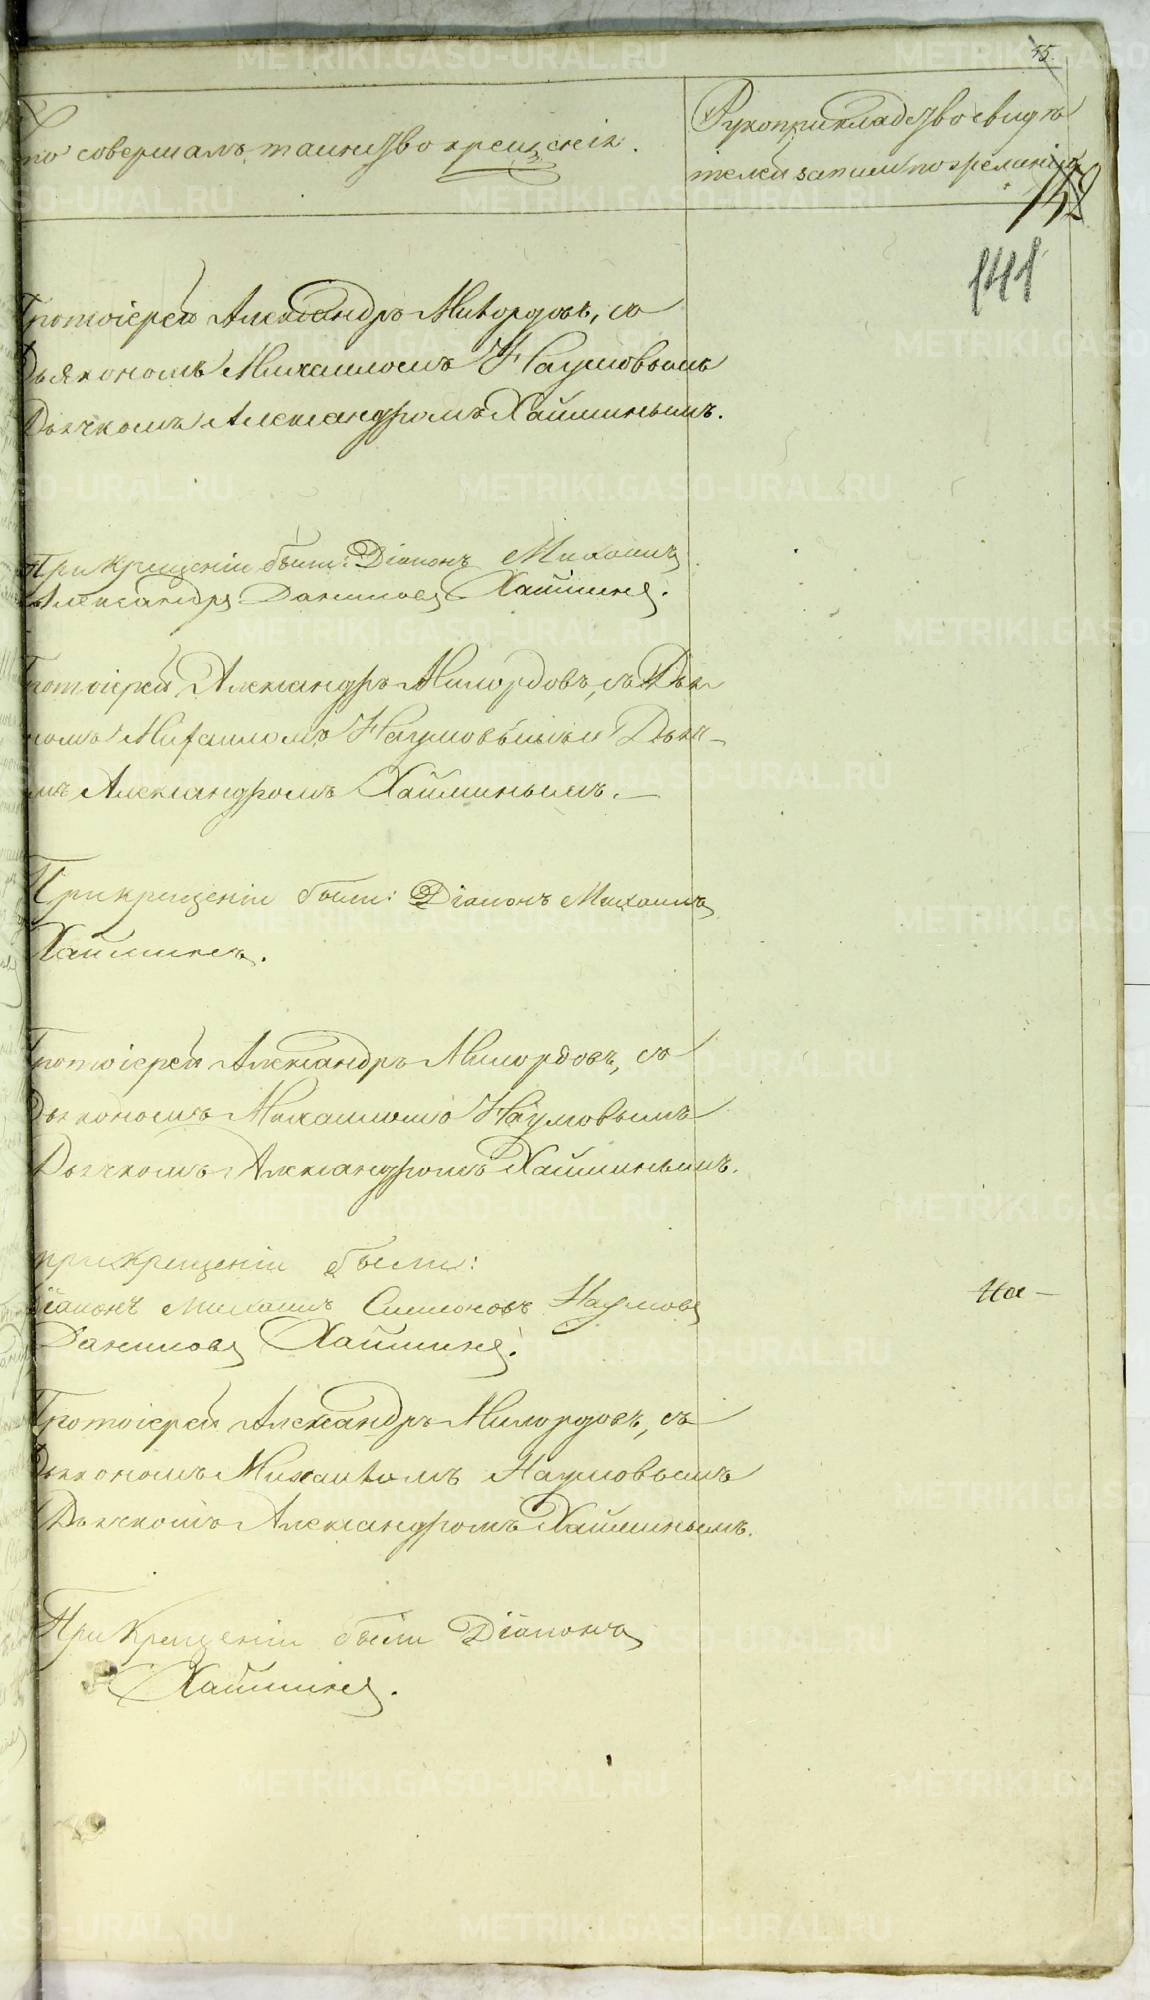 35.
Кто совершалъ таинство крещенія.
Рукоприкладство свидѣ
телей записи по желанію
141
Протоіерей Александръ Милордовъ, съ
Дьякономъ Михаиломъ Наумовымъ
Дьячкомъ Александромъ Хайминымъ.
При крещеніи были: Діаконъ Михаилъ
Александръ Даниловъ Хайминъ.
Протоіерей Александръ Милордовъ, съ Дья
комъ Михаиломъ Наумовымъ и Дьяч-
мъ Александромъ Хайминымъ.—
При крещеніи были: Діаконъ Михаилъ
Хайминъ.
Протоіерей Александръ Милордовъ, съ
Дьякономъ Михаиломъ Наумовымъ
Дьячкомъ Александромъ Хайминымъ.
При крещеніи были:
Діаконъ Михаилъ Симоновъ Наумовъ
Даниловъ Хайминъ.
На—
Протоіерей Александръ Милордовъ, съ
Дьякономъ Михаиломъ Наумовымъ
Дьячкомъ Александромъ Хайминымъ.
При крещеніи были Діаконъ
Хайминъ.
METRIKI.GASO-URAL.RU